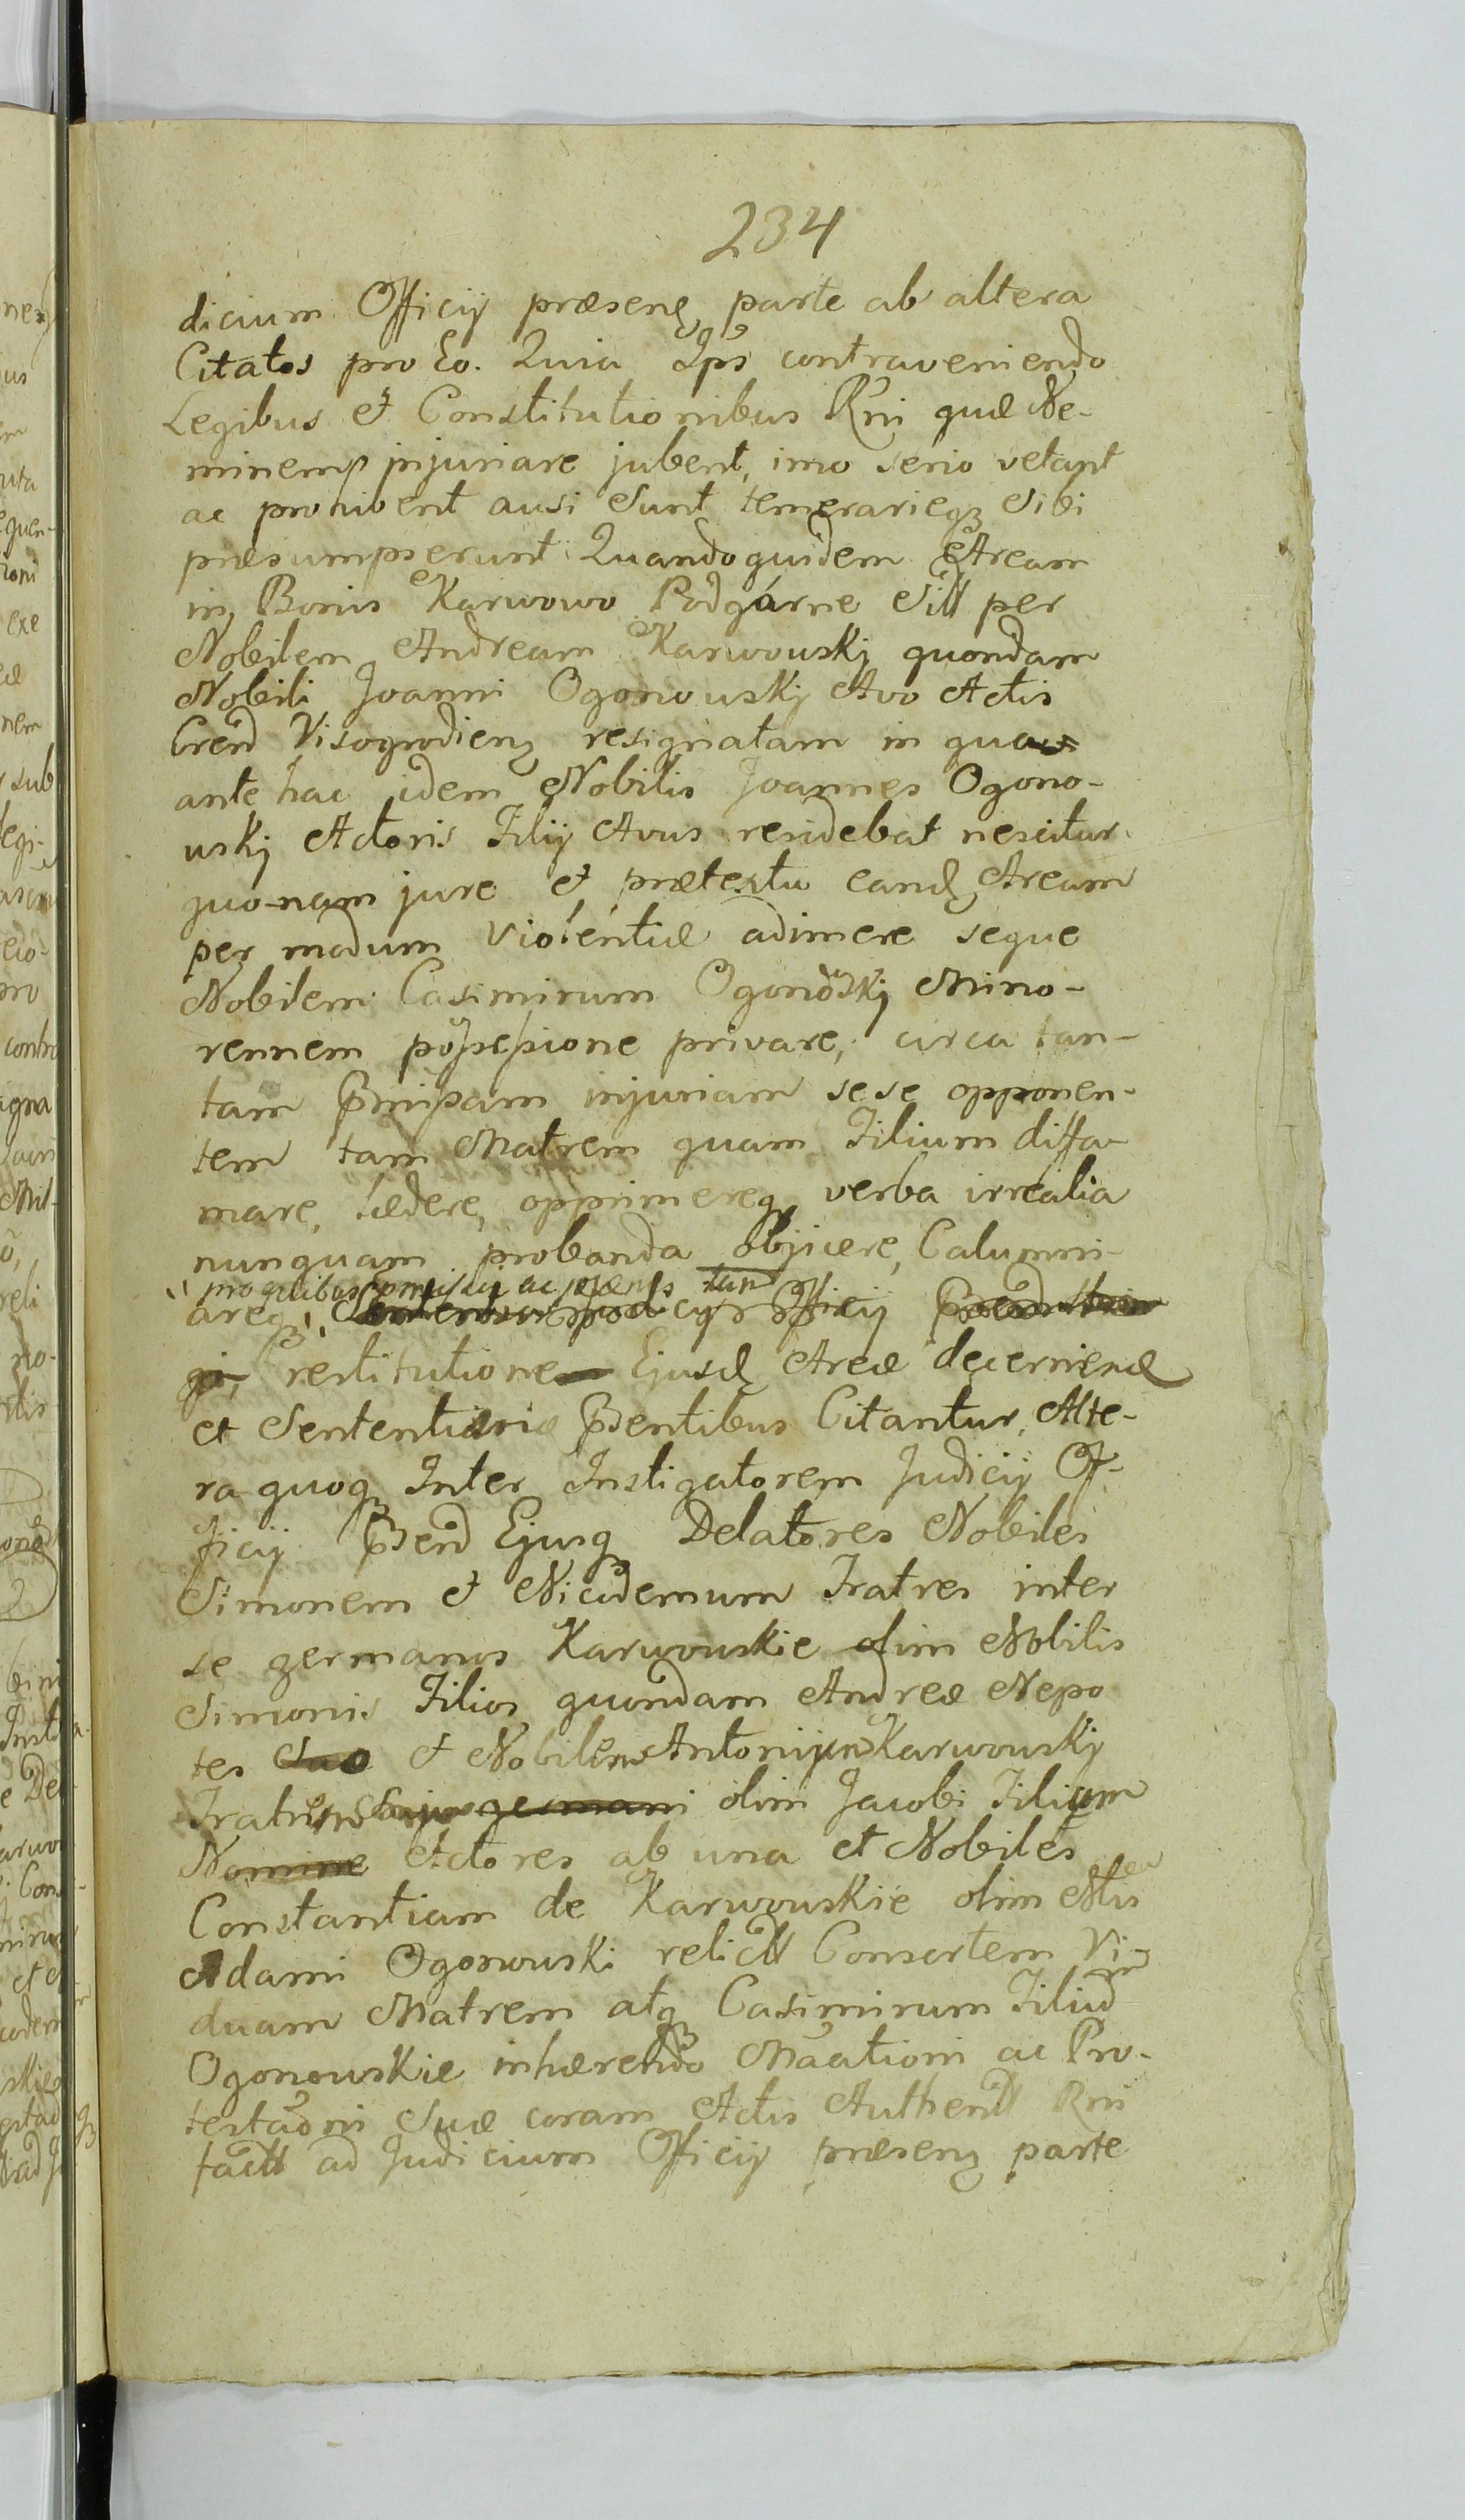 234
dicium Officij præsenę parte ab altera
Citatos pro Eo. Quia Ips̃i contraveniendo
Legibus et Constitutionibus R̃ni quæ Ne-
minem injuriare jubent, imo serio vetant
ac prohibent ausi Sunt temerarieqꝫ Sibi
præsumpserunt Quandoquidem Aream
in Bonis Karwowo Podgórne Sitt per
Nobilem Andream Karwowskj quondam
Nobili Joanni Ogonowskj Avo Actis
Cren̄d Visogrodienꝫ resignatam in qua
ante hac idem Nobilis Joannes Ogono-
wskj Actoris Filij Avus residebat nescitur
quo-nam jure et prætextu eandꝫ Aream
per modum violentiæ adimere seque
Nobilem Casimirum Ogonowskj Mino-
rennem possessione privare, circa tan-
tam injuriam sese opponen-
tem tam Matrem quam Filium diffa-
mare, lædere, opprimereqꝫ verba irrealia
nunquam probanda objicere, Calumni-
pro quibus ac pænis
areqꝫ Officij
restitutione Ejusdꝫ Areæ decerniend
et Sententiari Citantur, Alte-
ra quoqꝫ Inter Instigatorem Judicij Of-
ficij Ejusqꝫ Delatores Nobiles
Simonem et Nicodemum Fratres inter
se germanos Karwowskie olim Nobilis
Simonis Filios quondam Andreæ Nepo
tes Suo et Nobilem Antonium Karwowskj
Fratrem germani olim Jacobi Filium
Nomine Actores ab una et Nobiles
Constantiam de Karwowskie olim Nlis
Adami Ogonowski relictt Consortem Vi-
duam Matrem atqꝫ Casimirum Filium
Ogonowskie inhærendo Mãationi ac Pro-
testãoni Suæ coram Actis Authentt Rni
factt ad Judicium Officij præsenꝫ parte